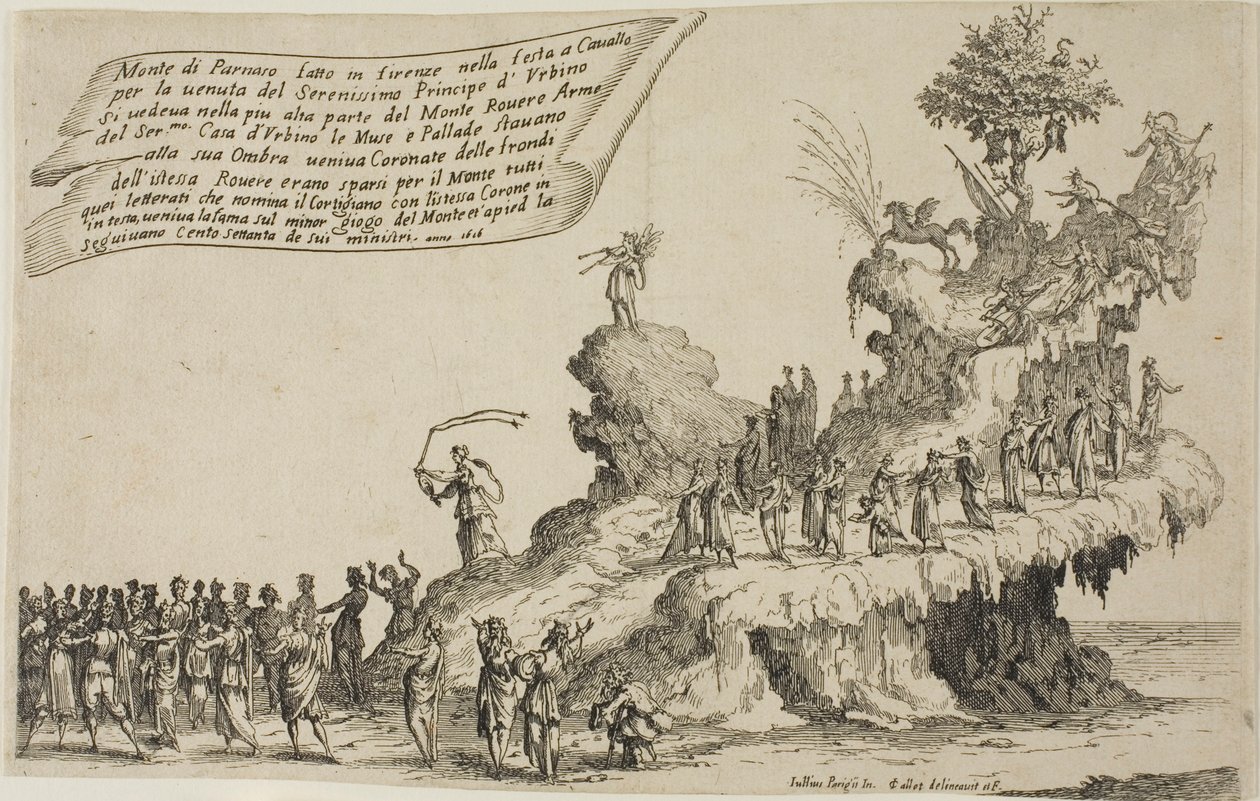 Monte di Parnaso fatto in firenze nella festa a Cauallo
per la uenuta del Serenissimo Principe d' Vrbino
Si uedeua nella piu alta parte del Monte Rouere Arme
del Ser.mo. Casa d'Vrbino le Muse e Pallade stauano
alla sua Ombra ueniua Coronate delle frondi
dell'istessa Rouere erano sparsi per il Monte tutti
quei letterati che nomina il Cortigiano con listessa Corone in
testa, ueniua la fama sul minor giogo del Monte et apied la
seguiuano Cento settanta de sui ministri. anno 1616
Iullius Parigii In. Callot delineauit et F.